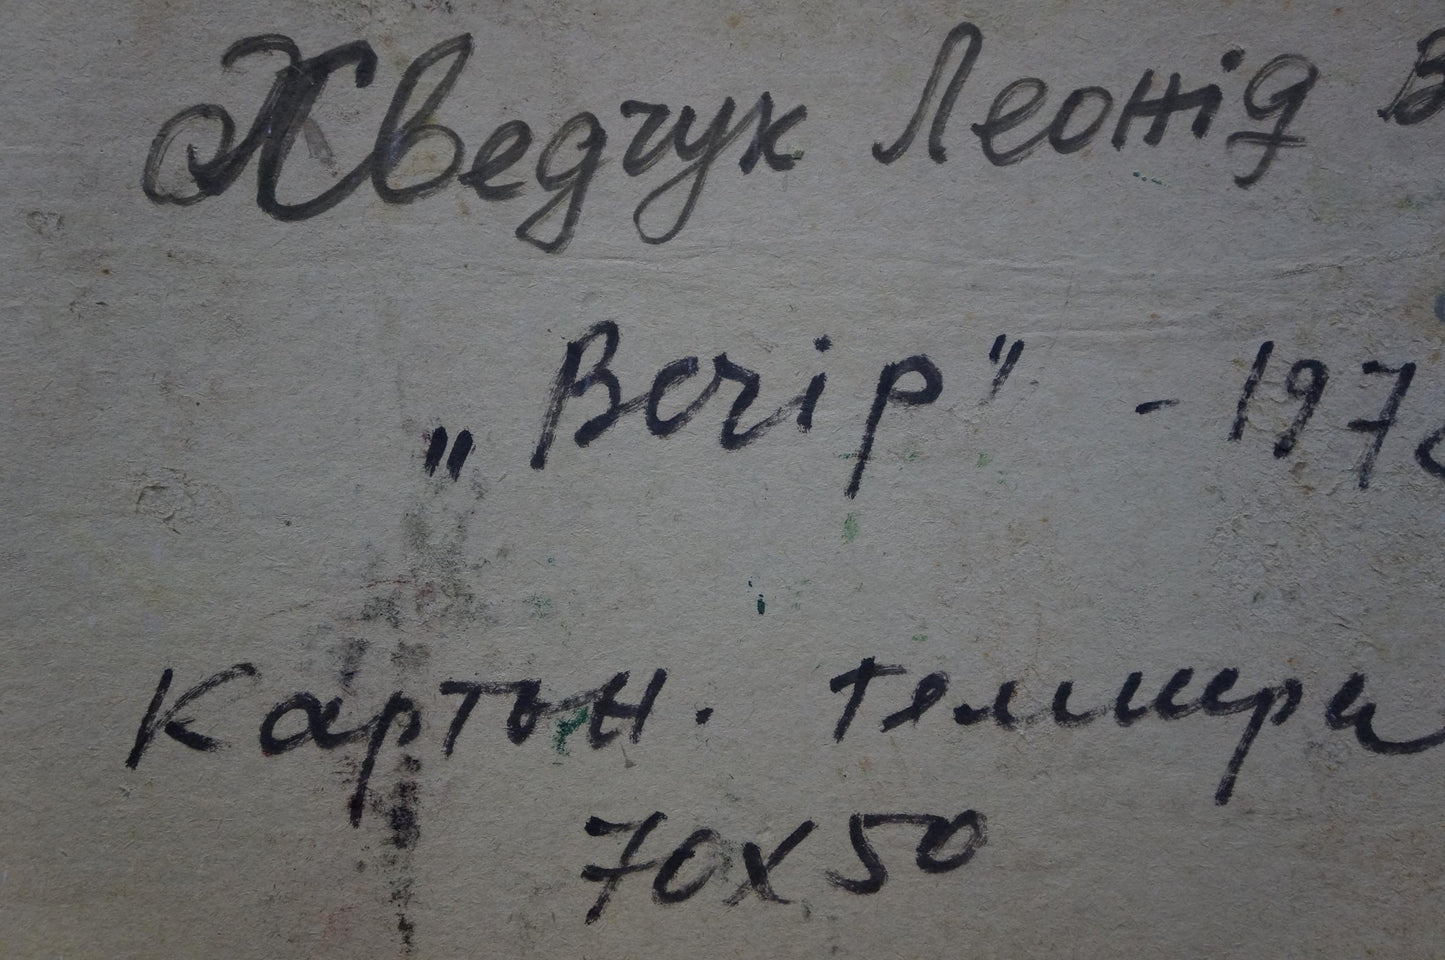 Хведчук Леонід В
„Вечір" - 197
Картон. темпера
70х50